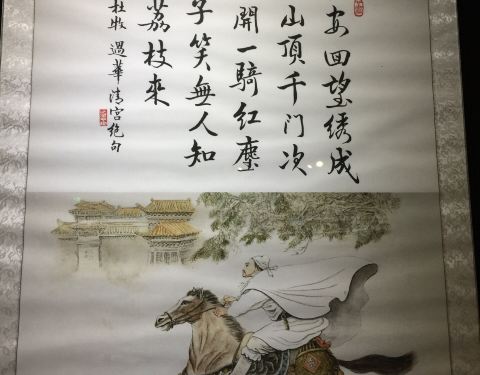 安回望绣成
山顶千门次
開一騎红塵
子笑無人知
荔枝來
杜牧 過華清宫绝句